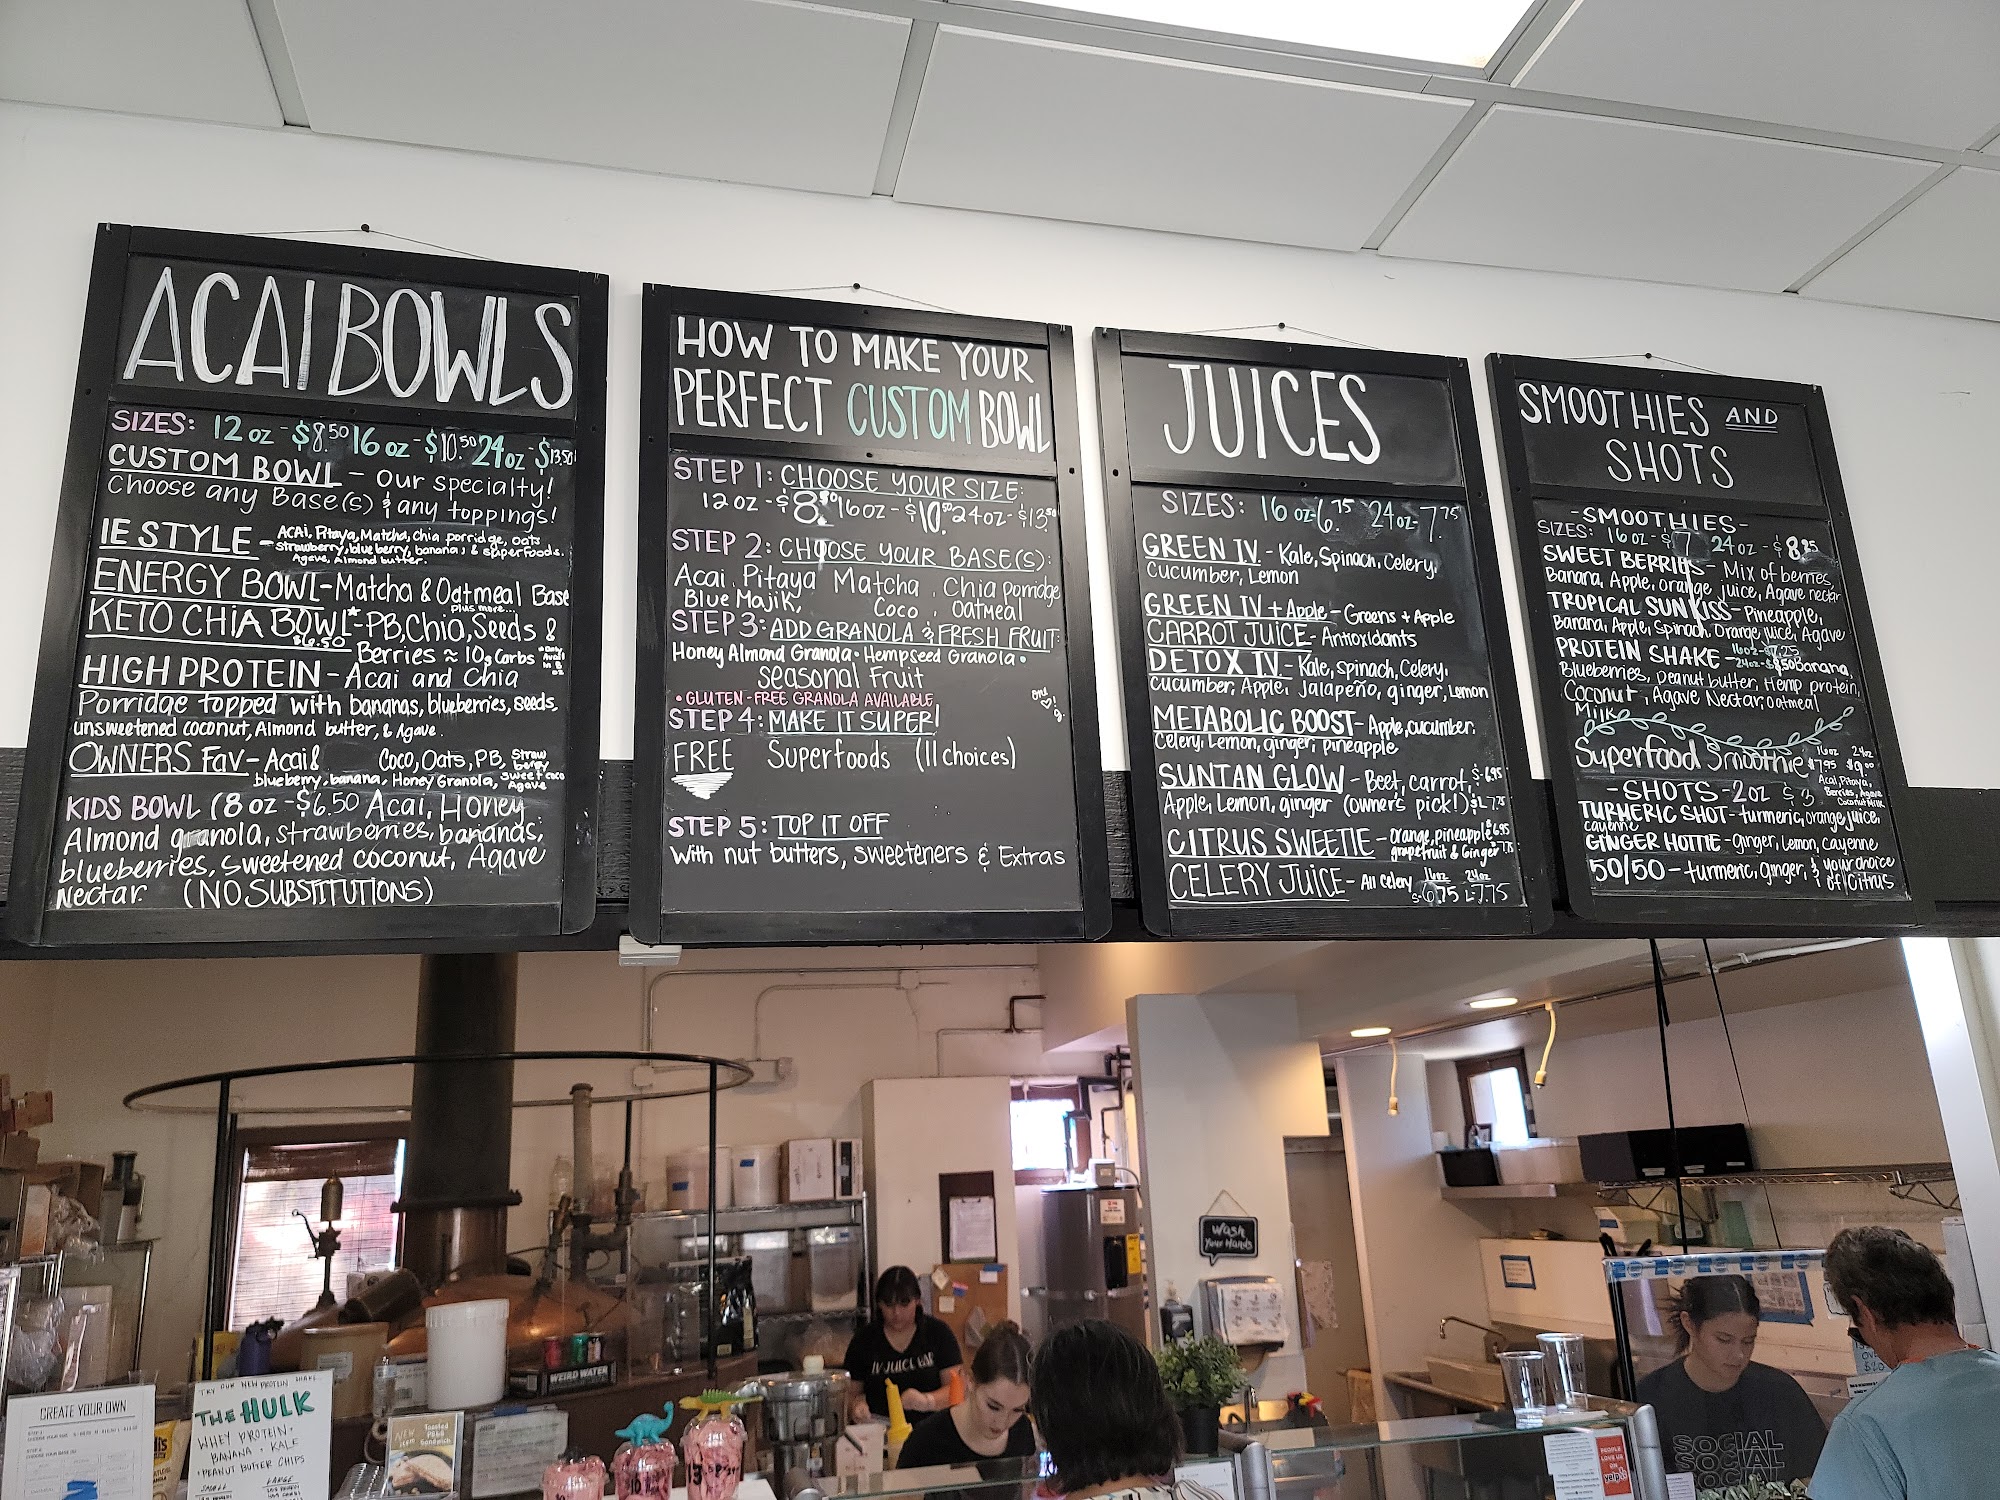 ACAI BOWLS
SIZES: 12 oz - $8.50 16 oz - $10.50 24 oz - $13.50
CUSTOM BOWL - our specialty!
Choose any Base(s) & any toppings!
IE STYLE - ACAI, Pitaya, Matcha, chia porridge, oats
strawberry, blueberry, banana, & superfoods.
Agave, Almond butter.
ENERGY BOWL - Matcha & Oatmeal Base
plus more...
KETO CHIA BOWL* - PB, Chia, Seeds &
$6.50 Berries ≈ 10g Carbs
HIGH PROTEIN - Acai and Chia
Porridge topped with bananas, blueberries, seeds,
unsweetened coconut, Almond butter, & Agave.
OWNERS Fav - Acai & Coco, Oats, PB, Straw
berry
blueberry, banana, Honey Granola, sweet coco
Agave
KIDS BOWL (8 oz - $6.50 Acai, Honey
Almond granola, strawberries, bananas,
blueberries, sweetened coconut, Agave
Nectar. (NO SUBSTITUTIONS)
HOW TO MAKE YOUR
PERFECT CUSTOM BOWL
STEP 1: CHOOSE YOUR SIZE:
12 oz - $8.50 16 oz - $10.50 24 oz - $13.50
STEP 2: CHOOSE YOUR BASE(S):
Acai, Pitaya Matcha, Chia porridge
Blue Majik, Coco, oatmeal
STEP 3: ADD GRANOLA & FRESH FRUIT:
Honey Almond Granola • Hempseed Granola •
Seasonal Fruit
• GLUTEN-FREE GRANOLA AVAILABLE
STEP 4: MAKE IT SUPER!
FREE Superfoods (11 choices)
STEP 5: TOP IT OFF
With nut butters, sweeteners & Extras
JUICES
SIZES: 16 oz - 6.75 24 oz - 7.75
GREEN IV. - Kale, Spinach, Celery,
Cucumber, Lemon
GREEN IV + Apple - Greens + Apple
CARROT JUICE - Antioxidants
DETOX IV. - Kale, Spinach, Celery,
Cucumber, Apple, Jalapeño, ginger, Lemon
METABOLIC BOOST - Apple, cucumber,
Celery, Lemon, ginger, pineapple
SUNTAN GLOW - Beet, carrot, S - 6.95
Apple, Lemon, ginger (owner's pick!) L 7.75
CITRUS SWEETIE - orange, pineapple 6.95
grapefruit & Ginger 7.75
CELERY JUICE - All Celery 16oz 24oz
S-6.75 L-7.75
SMOOTHIES AND
SHOTS
-SMOOTHIES-
SIZES: 16 oz - $7 24 oz - $8.25
SWEET BERRIES - Mix of berries,
Banana, Apple, orange juice, Agave nectar
TROPICAL SUNKISS - Pineapple,
Banana, Apple, Spinach, Orange juice, Agave
PROTEIN SHAKE - 16oz-$7.25
24oz-$8.50 Banana,
Blueberries, peanut butter, Hemp protein,
Coconut, Agave Nectar, oatmeal
Milk
Superfood Smoothie 16oz 24oz
$7.95 $9.00
Acai, Pitaya,
Berries, Agave
Coconut Milk
-SHOTS - 2oz $3
TURMERIC SHOT - turmeric, orange juice,
cayenne
GINGER HOTTIE - Ginger, Lemon, cayenne
50/50 - turmeric, ginger, & your choice
of Citrus
Wash
Your Hands
IV JUICE BAR
WEIRD WATER
CREATE YOUR OWN
TRY OUR NEW PROTEIN SHAKE
THE HULK
WHEY PROTEIN •
BANANA • KALE
• PEANUT BUTTER CHIPS
SMALL LARGE
NEW
ITEM
Toasted
PB&J
Sandwich
SOCIAL
SOCIAL
SOCIAL
PEOPLE
LOVE US
ON
yelp